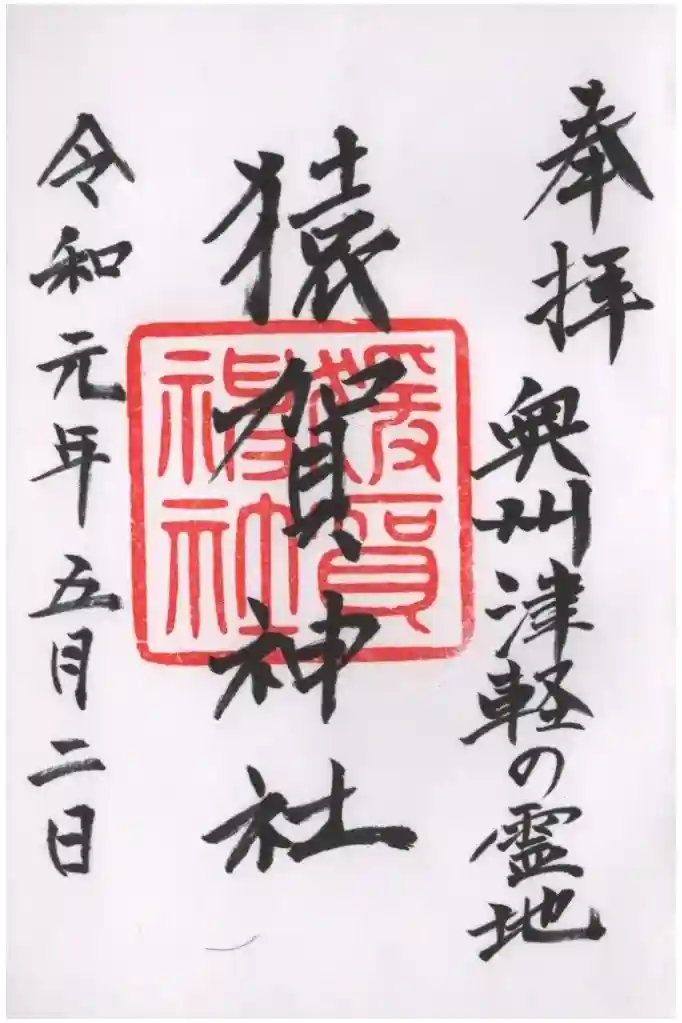 奉拝
奥州津軽の霊地
猿賀神社
猨賀神社
令和元年五月二日